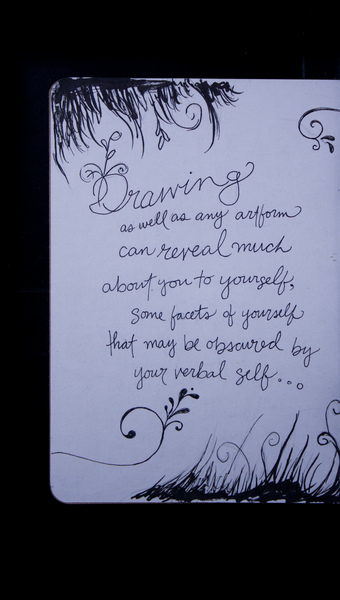 Drawing
as well as any artform
can reveal much
about you to yourself,
Some facets of yourself
that may be obscured by
your verbal self...